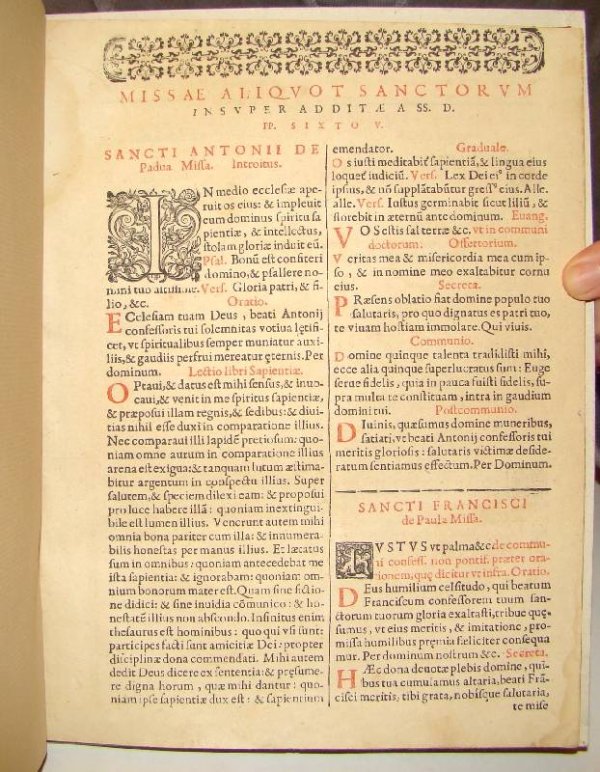 MISSAE ALIQVOT SANCTORVM
INSVPER ADDITÆ A SS. D.
PP. SIXTO V.
SANCTI ANTONII DE
Padua Missa. Introitus.
IN medio ecclesiæ ape-
ruit os eius: & impleuit
eum dominus spiritu sa
pientiæ, & intellectus,
stolam gloriæ induit eū.
Psal. Bonū est confiteri
domino, & psallere no-
mini tuo altissime. Vers. Gloria patri, & fi-
lio, &c. Oratio.
ECclesiam tuam Deus, beati Antonij
confessoris tui solemnitas votiua lętifi-
cet, vt spiritualibus semper muniatur auxi-
liis, & gaudiis perfrui mereatur ęternis. Per
dominum. Lectio libri Sapientiæ.
OPtaui, & datus est mihi sensus, & inuo-
caui, & venit in me spiritus sapientiæ,
& præposui illam regnis, & sedibus: & diui-
tias nihil esse duxi in comparatione illius.
Nec comparaui illi lapidē pretiosum: quo-
niam omne aurum in comparatione illius
arena est exigua: & tanquam lutum æstima-
bitur argentum in cōspectu illius. Super
salutem, & speciem dilexi eam: & proposui
pro luce habere illā: quoniam inextingui-
bile est lumen illius. Venerunt autem mihi
omnia bona pariter cum illa: & innumera-
bilis honestas per manus illius. Et lætatus
sum in omnibus: quoniam antecedebat me
ista sapientia: & ignorabam: quoniam om-
nium bonorum mater est. Quam sine fictio-
ne didici: & sine inuidia cōmunico: & ho-
nestatē illius non abscondo. Infinitus enim
thesaurus est hominibus: quo qui vsi sunt:
participes facti sunt amicitiæ Dei: propter
disciplinæ dona commendati. Mihi autem
dedit Deus dicere ex sententia: & pręsume-
re digna horum, quæ mihi dantur: quo-
niam ipse sapientiæ dux est: & sapientium
emendator. Graduale.
Os iusti meditabit sapientiā, & lingua eius
loquet iudiciū. Vers. Lex Dei ei in corde
ipsius, & nō supplātabūtur gress eius. Alle.
alle. Vers. Iustus germinabit sicut liliū, &
florebit in æternū ante dominum. Euang.
VOS estis sal terræ &c. vt in communi
doctorum. Offertorium.
Veritas mea & misericordia mea cum ip-
so, & in nomine meo exaltabitur cornu
eius. Secreta.
PRæsens oblatio fiat domine populo tuo
salutaris, pro quo dignatus es patri tuo,
te viuam hostiam immolare. Qui viuis.
Communio.
Domine quinque talenta tradidisti mihi,
ecce alia quinque superlucratus sum: Euge
serue fidelis, quia in pauca fuisti fidelis, su-
pra multa te constituam, intra in gaudium
domini tui. Postcommunio.
DIuinis, quæsumus domine muneribus,
satiati, vt beati Antonij confessoris tui
meritis gloriosis: salutaris victimæ deside-
ratum sentiamus effectum. Per Dominum.
SANCTI FRANCISCI
de Paula Missa.
IVSTVS vt palma &c. de commu-
ni confess. non pontif. præter ora-
tionem, quę dicitur vt infra. Oratio.
DEus humilium celsitudo, qui beatum
Franciscum confessorem tuum san-
ctorum tuorum gloria exaltasti, tribue quę-
sumus, vt eius meritis, & imitatione, pro-
missa humilibus pręmia fœliciter consequa
mur. Per dominum nostrum &c. Secreta.
HÆc dona deuotæ plebis domine, qui-
bus tua cumulamus altaria, beati Frā-
cisci meritis, tibi grata, nobisque salutaria,
te mise